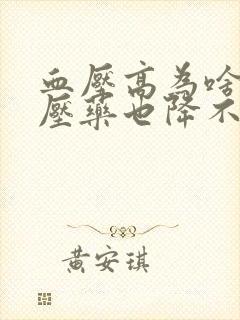 血壓高為啥
壓藥也降不
黃安琪